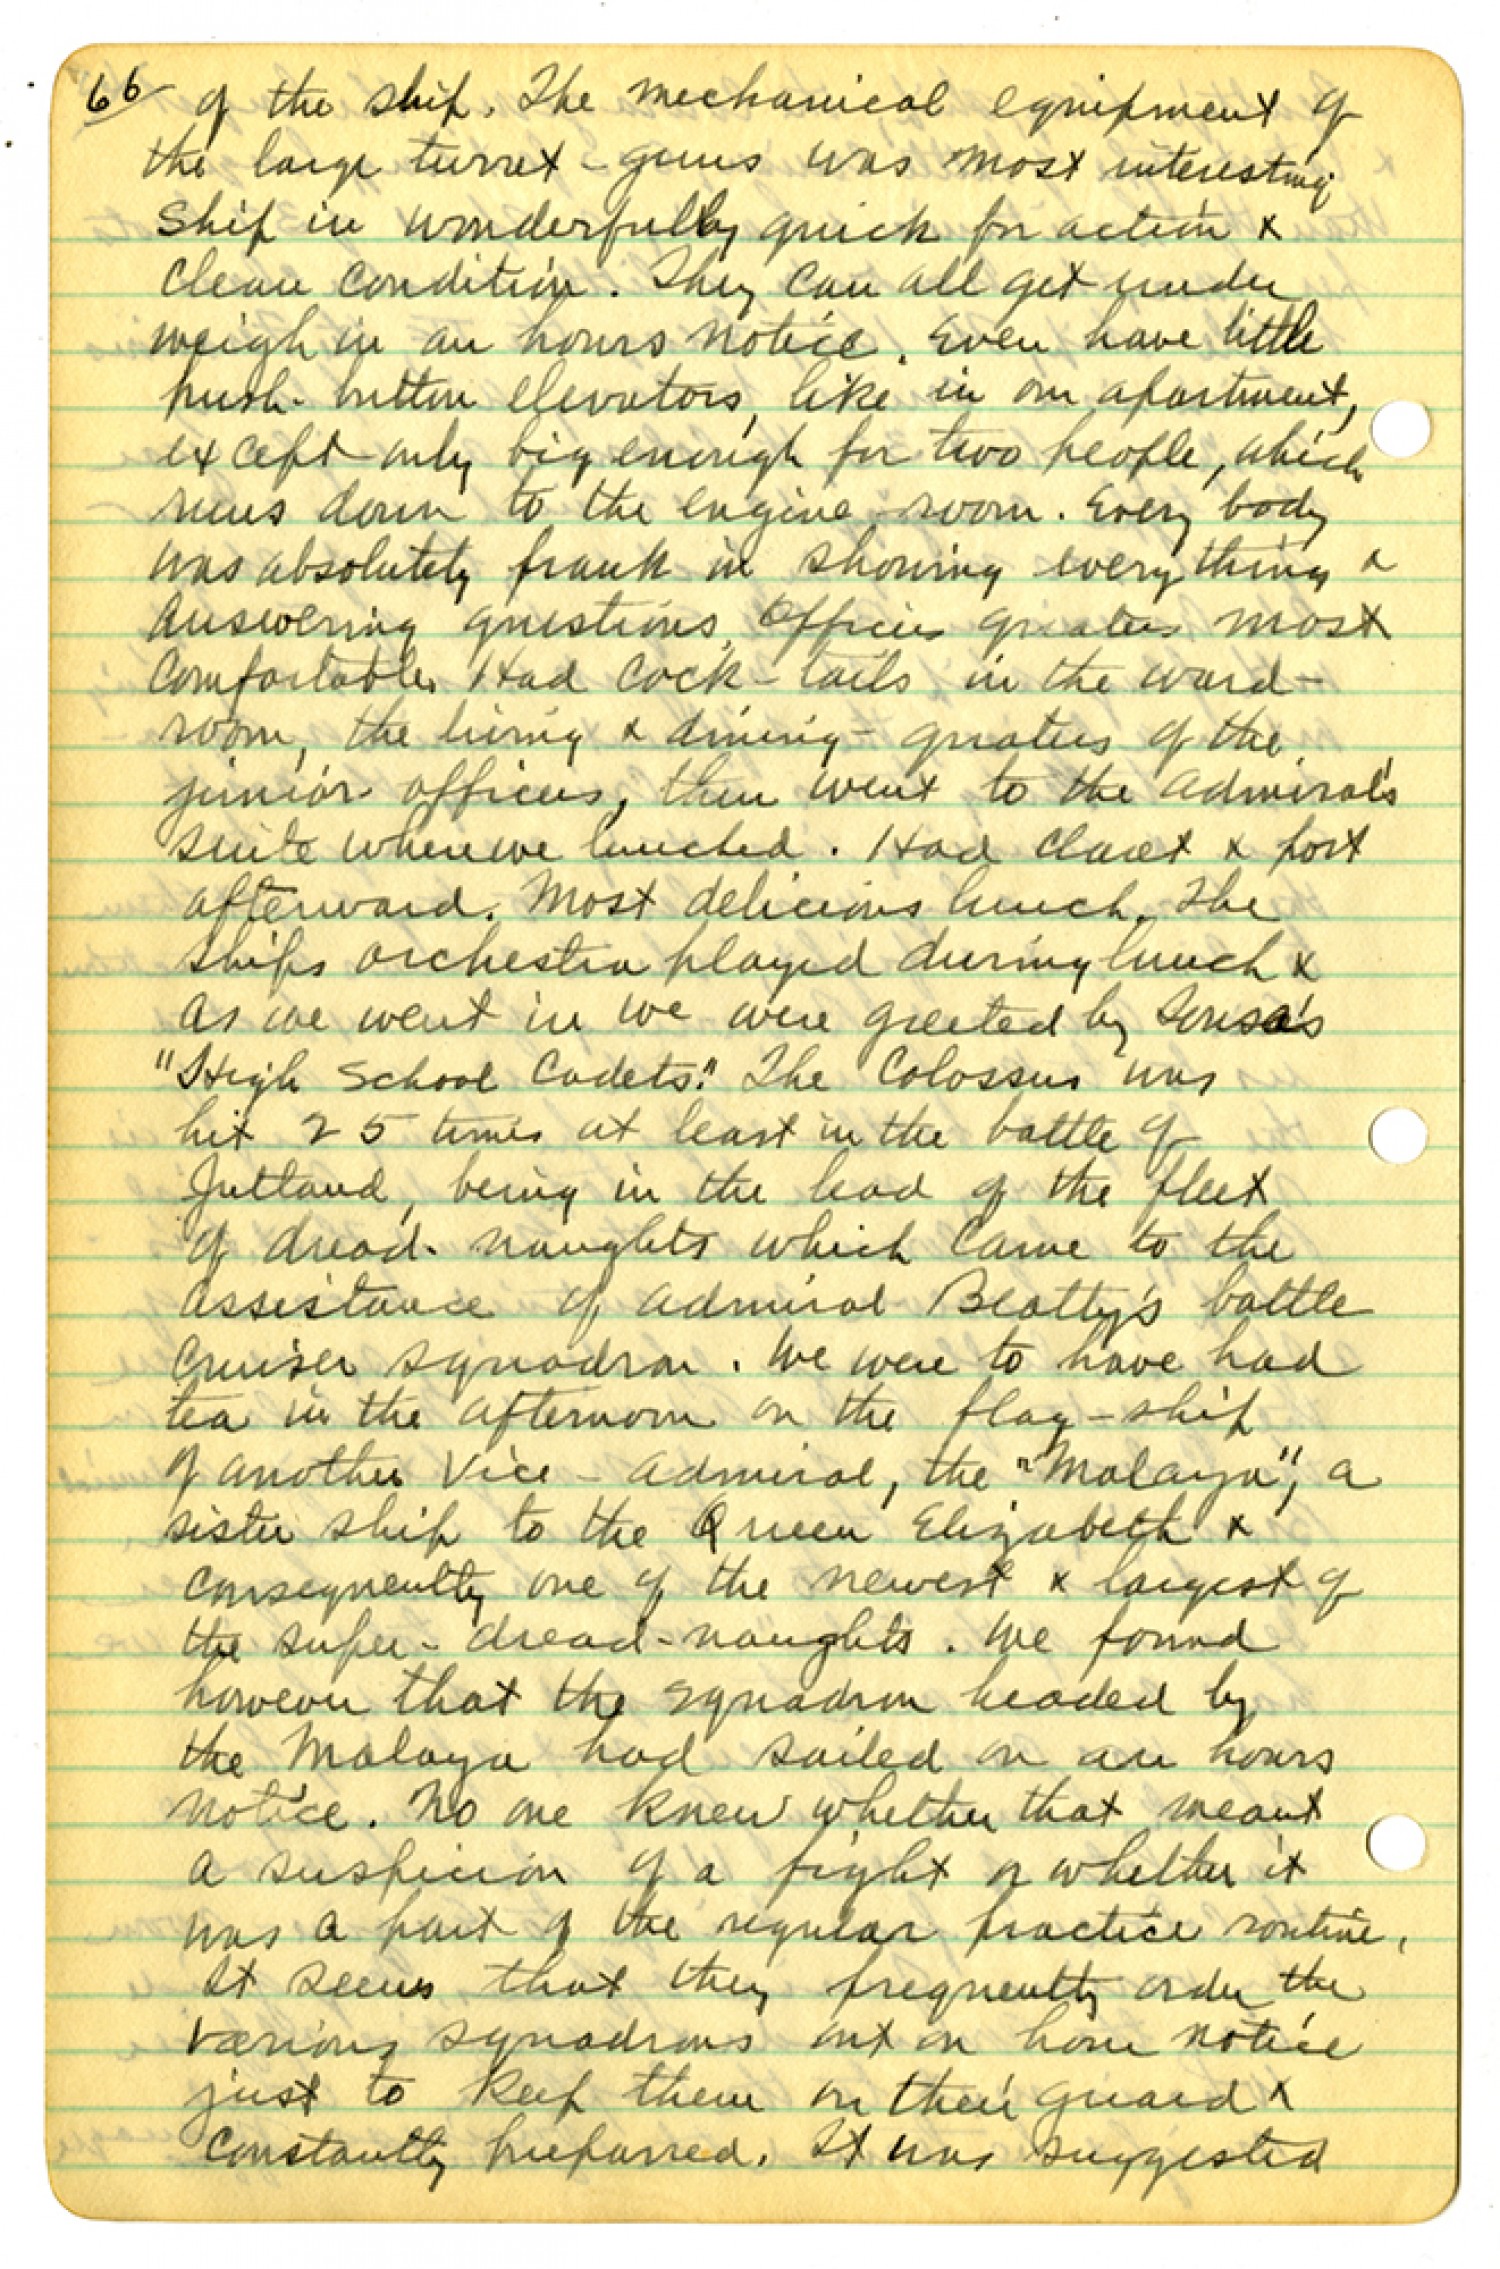 66 of the ship. The mechanical equipment of
the large turret-guns was most interesting
Ship in wonderfully quick for action &
clean condition. They can all get under
weigh in an hours notice. Even have little
push-button elevators, like in our apartment,
except only big enough for two people, which
runs down to the engine-room. Every body
was absolutely frank in showing every thing &
answering questions. Officers quaters most
comfortable. Had cock-tails in the ward-
room, the living & dining-quaters of the
junior officers, then went to the Admiral's
suite where we lunched. Had claret & port
afterward. Most delicious lunch. The
ships orchestra played during lunch &
as we went in we were greeted by Sousa's
"High School Cadets." The Colossus was
hit 25 times at least in the battle of
Jutland, being in the lead of the fleet
of dread-naughts which came to the
assistance of Admiral Beatty's battle
cruiser squadron. We were to have had
tea in the afternoon on the flag-ship
of another Vice-Admiral, the "Malaya", a
sister ship to the Queen Elizabeth &
consequently one of the newest & largest of
the super-dread-naughts. We found
however that the squadron headed by
the Malaya had sailed on an hours
notice. No one knew whether that meant
a suspicion of a fight or whether it
was a part of the regular practice routine.
It seems that they frequently order the
various squadrons out on hour notice
just to keep them on their guard &
constantly preparred. It was suggested